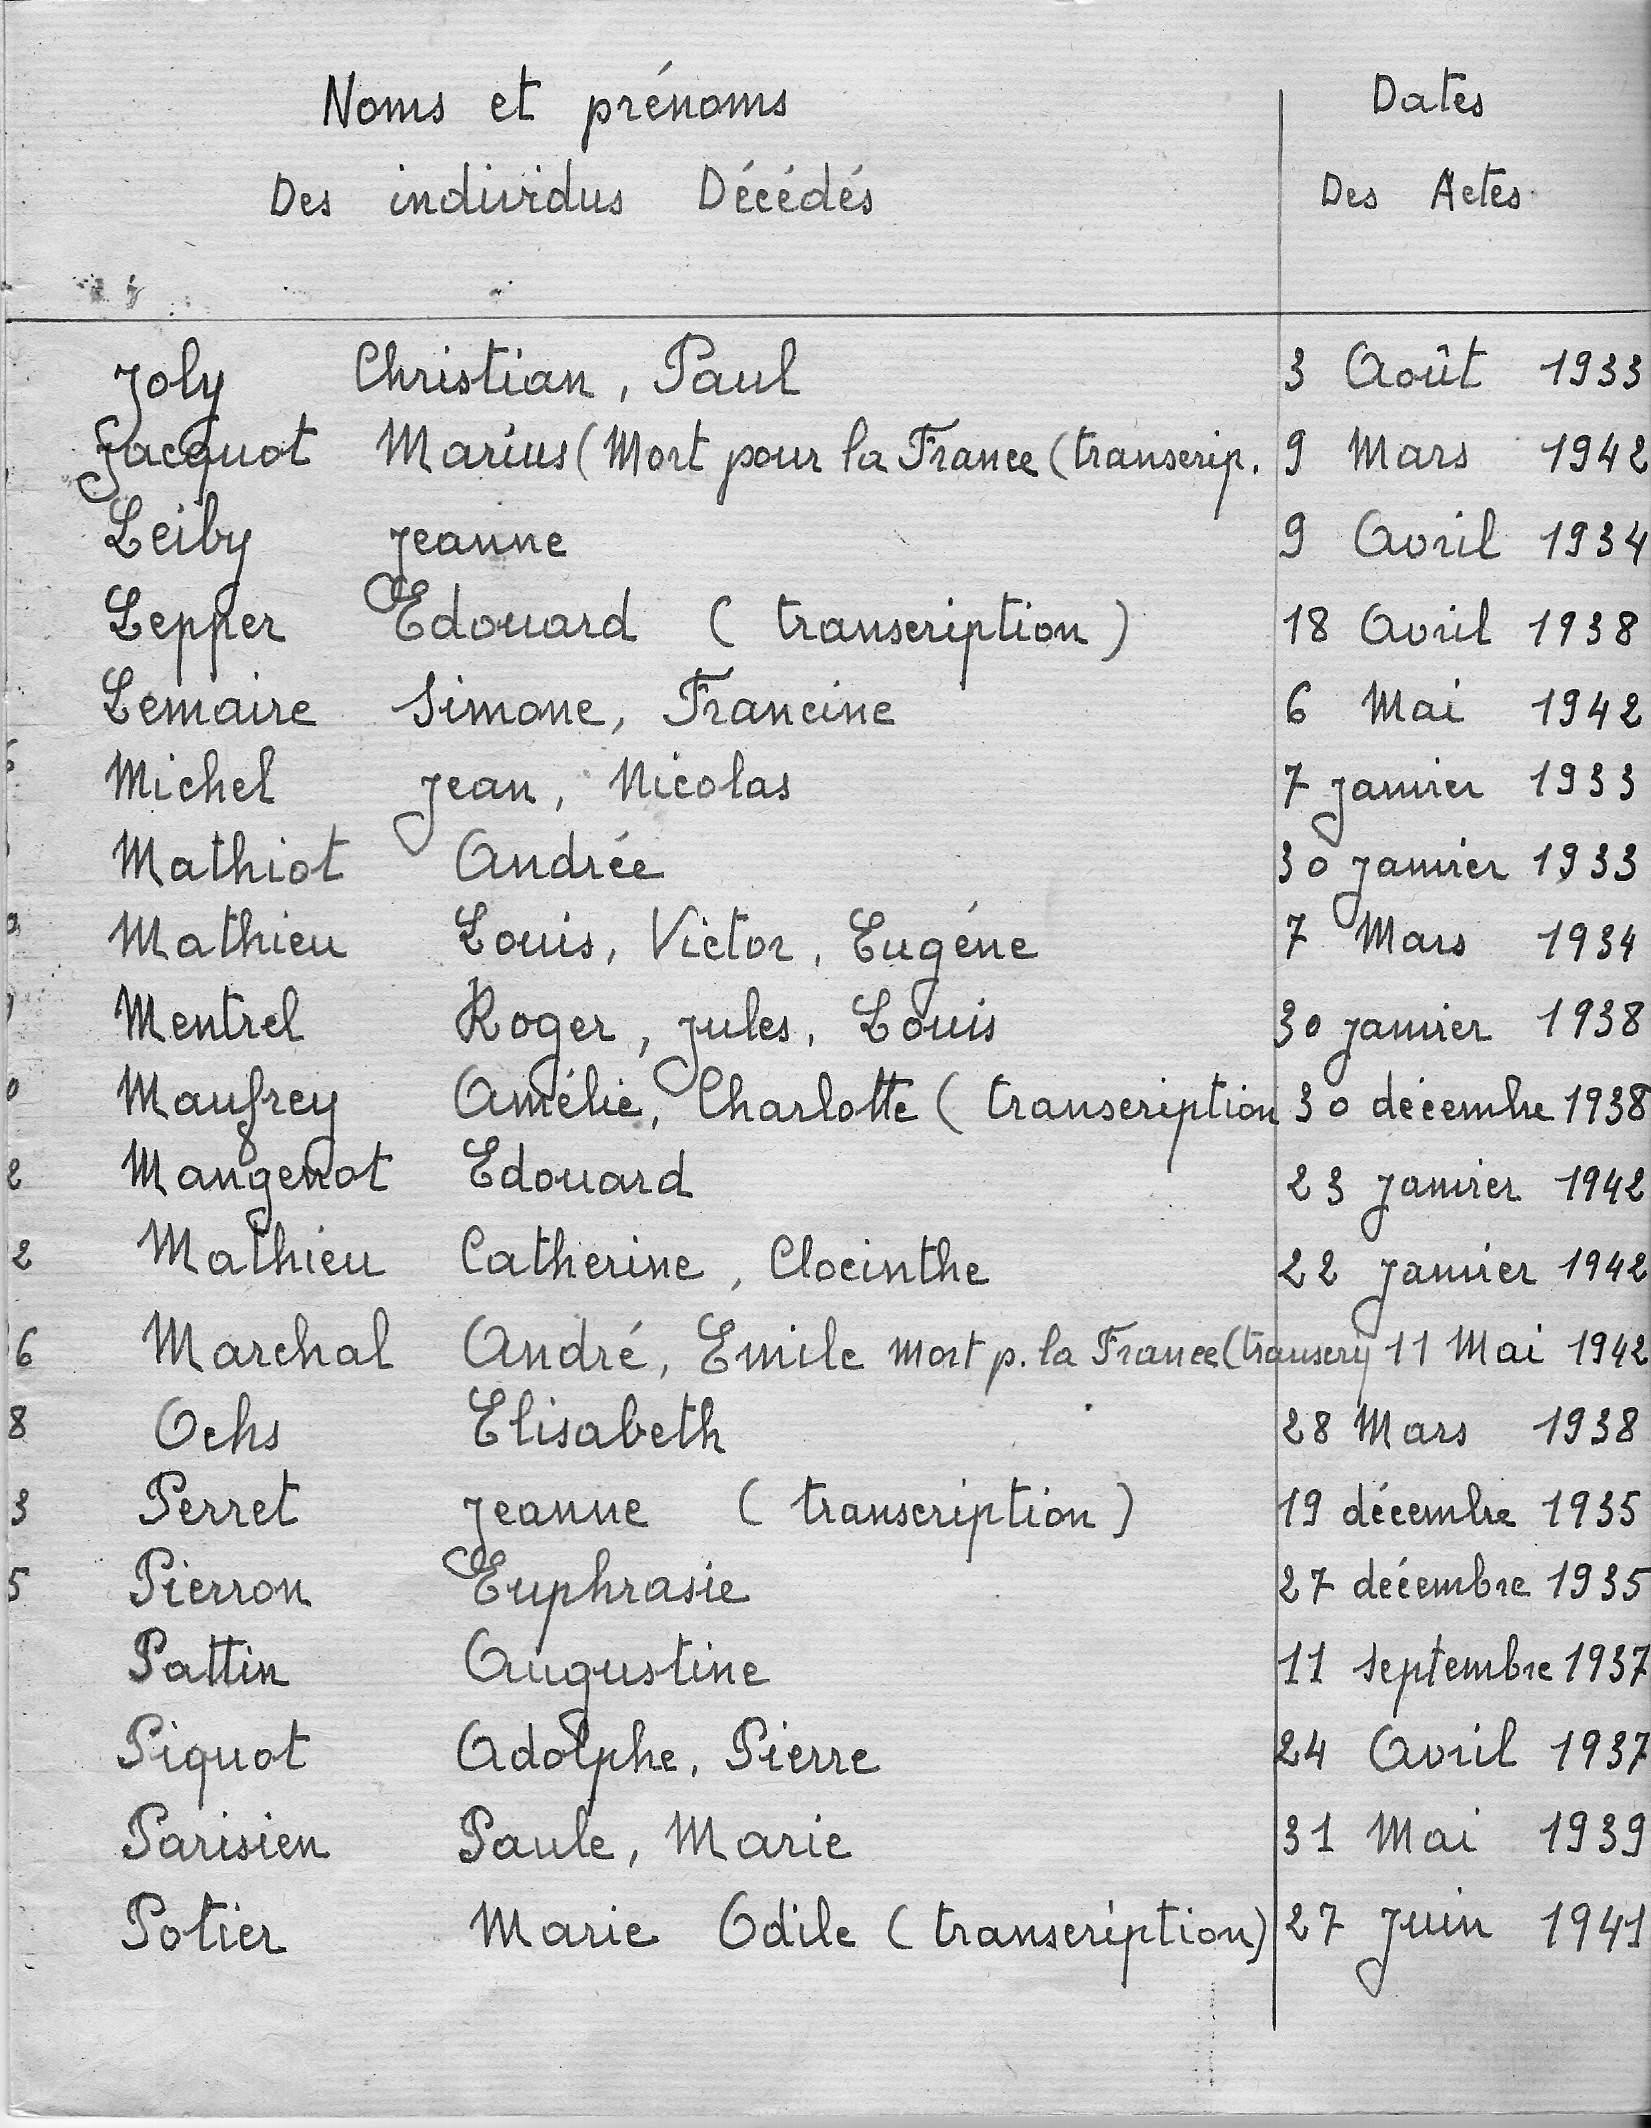 Noms et prénoms
Dates
Des individus Décédés
Des Actes
Joly Christian, Paul 3 Août 1933
Jacquot Marius (Mort pour la France (transcrip. 9 Mars 1942
Leiby Jeanne 9 Avril 1934
Lepper Edouard (transcription) 18 Avril 1938
Lemaire Simone, Francine 6 Mai 1942
Michel Jean, Nicolas 7 Janvier 1933
Mathiot Andrée 30 Janvier 1933
Mathieu Louis, Victor, Eugéne 7 Mars 1934
Mentrel Roger, Jules, Louis 30 Janvier 1938
Maufrey Amélie, Charlotte (transcription 30 décembre 1938
2 Mangenot Edouard 23 Janvier 1942
2 Mathieu Catherine, Clocinthe 22 Janvier 1942
6 Marchal André, Emile mort p. la France (transcrip 11 Mai 1942
8 Ochs Elisabeth 28 Mars 1938
3 Perret Jeanne (transcription) 19 décembre 1935
5 Pierron Euphrasie 27 décembre 1935
Pattin Augustine 11 septembre 1937
Piquot Adolphe, Pierre 24 Avril 1937
Parisien Paule, Marie 31 Mai 1939
Potier Marie Odile (transcription) 27 Juin 1941